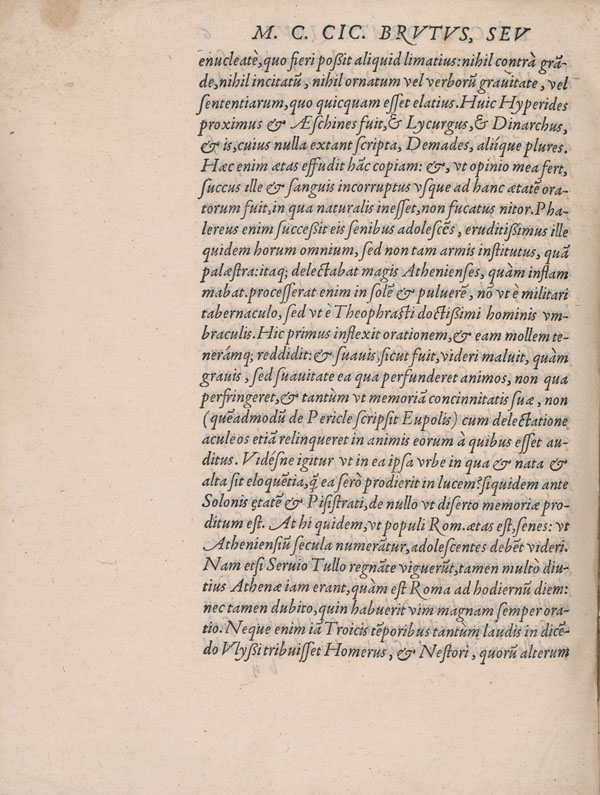 M. C. CIC. BRVTVS, SEV
enucleatè,quo fieri poßit aliquid limatius:nihil contrà grã-
de,nihil incitatũ, nihil ornatum vel verborũ grauitate, vel
sententiarum,quo quicquam esset elatius. Huic Hyperides
proximus & Æschines fuit,& Lycurgus,& Dinarchus,
& is,cuius nulla extant scripta, Demades, aliíque plures.
Hæc enim ætas effudit hãc copiam: &, vt opinio mea fert,
succus ille & sanguis incorruptus vsque ad hanc ætatẽ ora-
torum fuit,in qua naturalis inesset,non fucatus nitor. Pha-
lereus enim succeßit eis senibus adolescẽs, eruditißimus ille
quidem horum omnium, sed non tam armis institutus, quã
palæstra:itaq; delectabat magis Athenienses, quàm inflam
mabat.processerat enim in solẽ & puluerẽ, nõ vt è militari
tabernaculo, sed vt è Theophrasti doctißimi hominis vm-
braculis. Hic primus inflexit orationem,& eam mollem te-
nerámq; reddidit:& suauis, sicut fuit,videri maluit, quàm
grauis, sed suauitate ea qua perfunderet animos, non qua
perfringeret,& tantùm vt memoriã concinnitatis suæ, non
(quẽadmodũ de Pericle scripsit Eupolis) cum delectatione
aculeos etiã relinqueret in animis eorum à quibus esset au-
ditus. Vidésne igitur vt in ea ipsa vrbe in qua & nata &
alta sit eloquẽtia,q̃ ea serò prodierit in lucem?siquidem ante
Solonis ętatẽ & Pisistrati,de nullo vt diserto memoriæ pro-
ditum est. At hi quidem,vt populi Rom.ætas est,senes: vt
Atheniensiũ secula numerãtur,adolescentes debẽt videri.
Nam etsi Seruio Tullo regnãte viguerũt,tamen multò diu-
tius Athenæ iam erant,quàm est Roma ad hodiernũ diem:
nec tamen dubito,quin habuerit vim magnam semper ora-
tio. Neque enim iã Troicis tẽporibus tantùm laudis in dicẽ-
do Vlyßi tribuisset Homerus, & Nestori, quorũ alterum